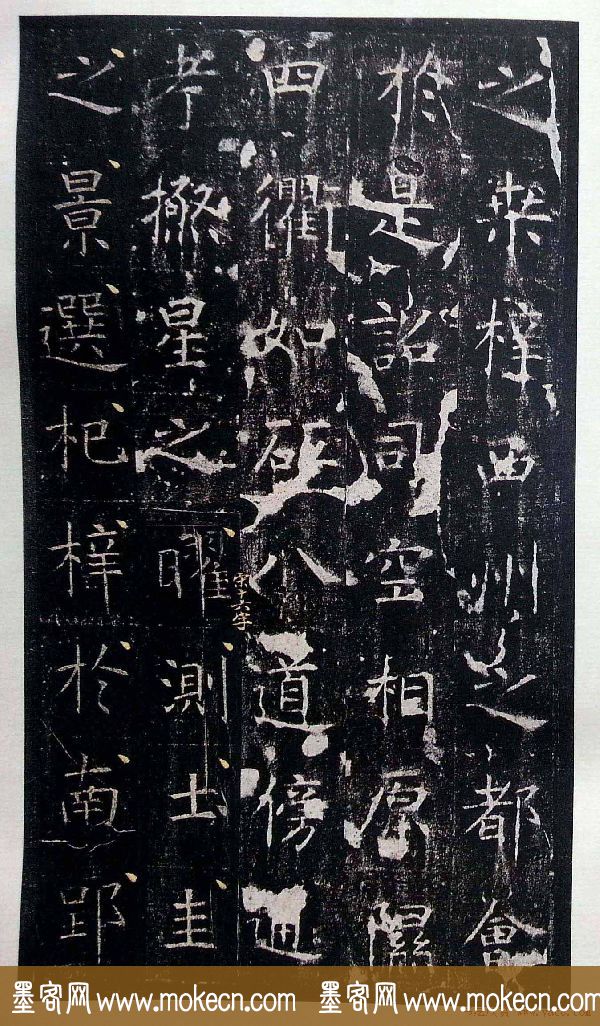 之桒梓西州之都會
於是詔司空相原隰
四衢如砥八道傍通
考極星之曜測土圭
之景選杞梓於南郢
十六字
墨客网 www.mokecn.com 墨客网 www.mokecn.com